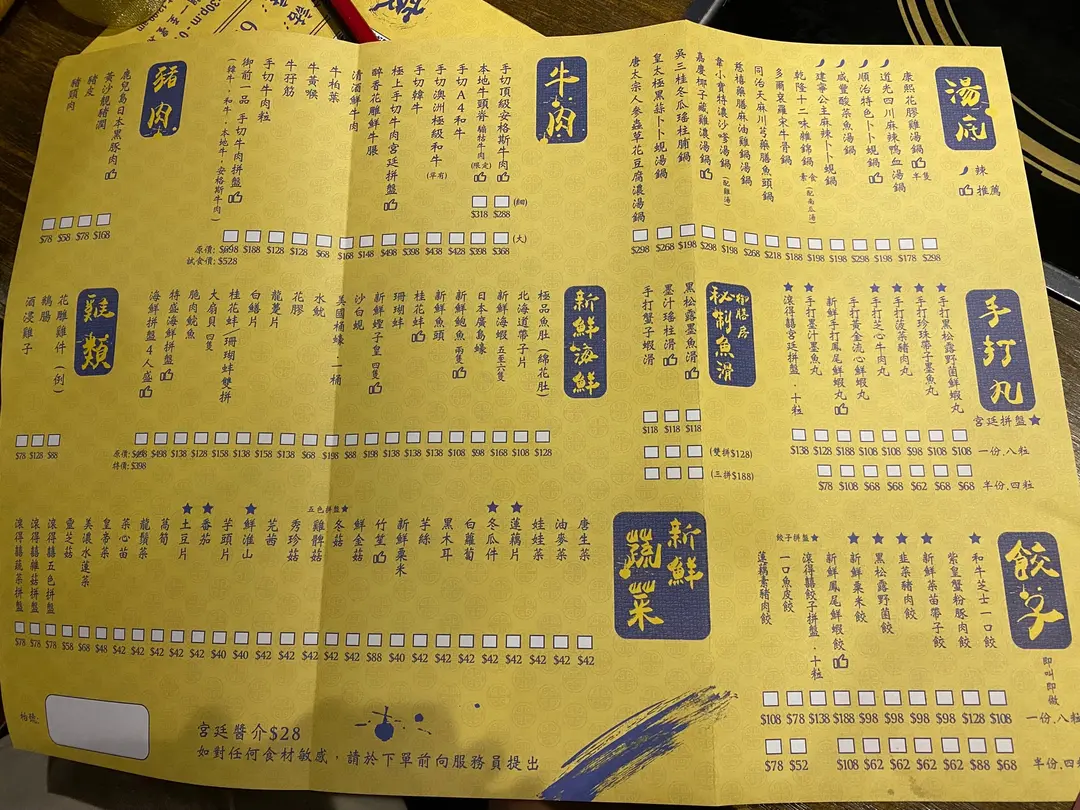 湯底
辣
推薦
康熙花膠雞湯鍋 半隻 $298
道光四川麻辣鴨血湯鍋 $178
順治特色卜卜蜆鍋 $198
咸豐酸菜魚湯鍋 $298
建寧公主麻辣卜卜蜆鍋 $198
乾隆十二味雜錦鍋 素食 (配南瓜湯) $188
多爾袞羅宋牛骨鍋 $218
同治天麻川芎藥膳魚頭鍋 $268
慈禧藥膳麻油雞鍋湯鍋 (配雞湯) $298
韋小寶特濃沙嗲湯鍋 $198
嘉慶椰子藏雞濃湯鍋 $298
吳三桂冬瓜瑤柱脯鍋 $198
皇太極黑蒜卜卜蜆湯鍋 $268
唐太宗人參蟲草花豆腐濃湯鍋 $298
牛肉
手切頂級安格斯牛肉 $288 (細) $368 (大)
本地牛頸脊 貓牯牛肉 (限定) $318 $398
手切A4和牛 $428
手切澳洲極級和牛 (罕有) $438
手切韓牛 $398
極上手切牛肉宮廷拼盤 $498
醉香花雕鮮牛𦟌 $148
清酒鮮牛肉 $168
牛柏葉 $68
牛黃喉 $128
牛孖筋 $128
手切牛肉粒 $188
御前一品.手切牛肉拼盤
(韓牛,和牛,本地牛,安格斯牛肉)
原價: $698
試食價: $528
豬肉
鹿兒島日本黑豚肉 $168
黃沙靚豬潤 $78
豬皮 $58
豬頸肉 $78
手打丸
宮廷拼盤★
手打黑松露野菌鮮蝦丸
手打珍珠帶子墨魚丸
手打菠菜豬肉丸
手打芝心牛肉丸
手打黃金流心鮮蝦丸
新鮮手打鳳尾鮮蝦丸
手打墨汁墨魚丸
滾得囍宮廷拼盤.十粒
$138 $128 $188 $108 $108 $108 $98 $108 一份.八粒
$78 $108 $68 $68 $62 $68 $68 半份.四粒
御膳房
秘制魚滑
黑松露墨魚滑 $118
墨汁瑤柱滑 $118
手打蟹子蝦滑 $118
(雙拼$128)
(三拼$188)
新鮮海鮮
極品魚肚(綿花肚) $128
北海道帶子片 $108
新鮮海蝦 五至六隻 $168
日本廣島蠔 $98
新鮮鮑魚 兩隻 $108
新鮮魚頭 $138
桂花蚌 $138
珊瑚蚌 $138
新鮮蟶子皇 四隻 $198
沙白蜆 $88
美國桶蠔.一桶 $198
水魷 $68
花膠 $138
龍躉片 $158
白鱔片 $138
桂花蚌.珊瑚蚌雙拼 $158
大扇貝 四隻 $128
脆肉鯇魚 $138
特盛海鮮拼盤 $498
海鮮拼盤4人盛
原價: $498
特價: $398
雞類
花雕雞件(例) $88
鵝腸 $128
酒浸雞子 $78
餃子
即叫即做
餃子拼盤★
和牛芝士一口餃
紫皇蟹粉豚肉餃
新鮮菜苗帶子餃
韭菜豬肉餃
黑松露野菌餃
新鮮粟米餃
新鮮鳳尾鮮蝦餃
滾得囍餃子拼盤.十粒
一口魚皮餃
蓮藕素豬肉餃
$108 $78 $138 $188 $98 $98 $98 $98 $128 $108 一份.八粒
$78 $52 $108 $62 $62 $62 $62 $88 $68 半份.四粒
新鮮蔬菜
五色拼盤★
唐生菜 $42
油麥菜 $42
娃娃菜 $42
蓮藕片 $42
冬瓜件 $42
白蘿蔔 $42
黑木耳 $42
芋絲 $42
新鮮粟米 $40
竹笙 $88
鮮金菇 $42
冬菇 $42
雞髀菇 $42
秀珍菇 $42
芫茜 $42
鮮淮山 $42
芋頭片 $40
番茄 $40
土豆片 $42
萵筍 $42
龍鬚菜 $42
菜心苗 $42
皇帝菜 $48
美濃水蓮菜 $68
靈芝菇 $58
滾得囍五色拼盤 $78
滾得囍雜菇拼盤 $78
滾得囍蔬菜拼盤 $78
枱號:
宮廷醬介$28
如對任何食材敏感,請於下單前向服務員提出